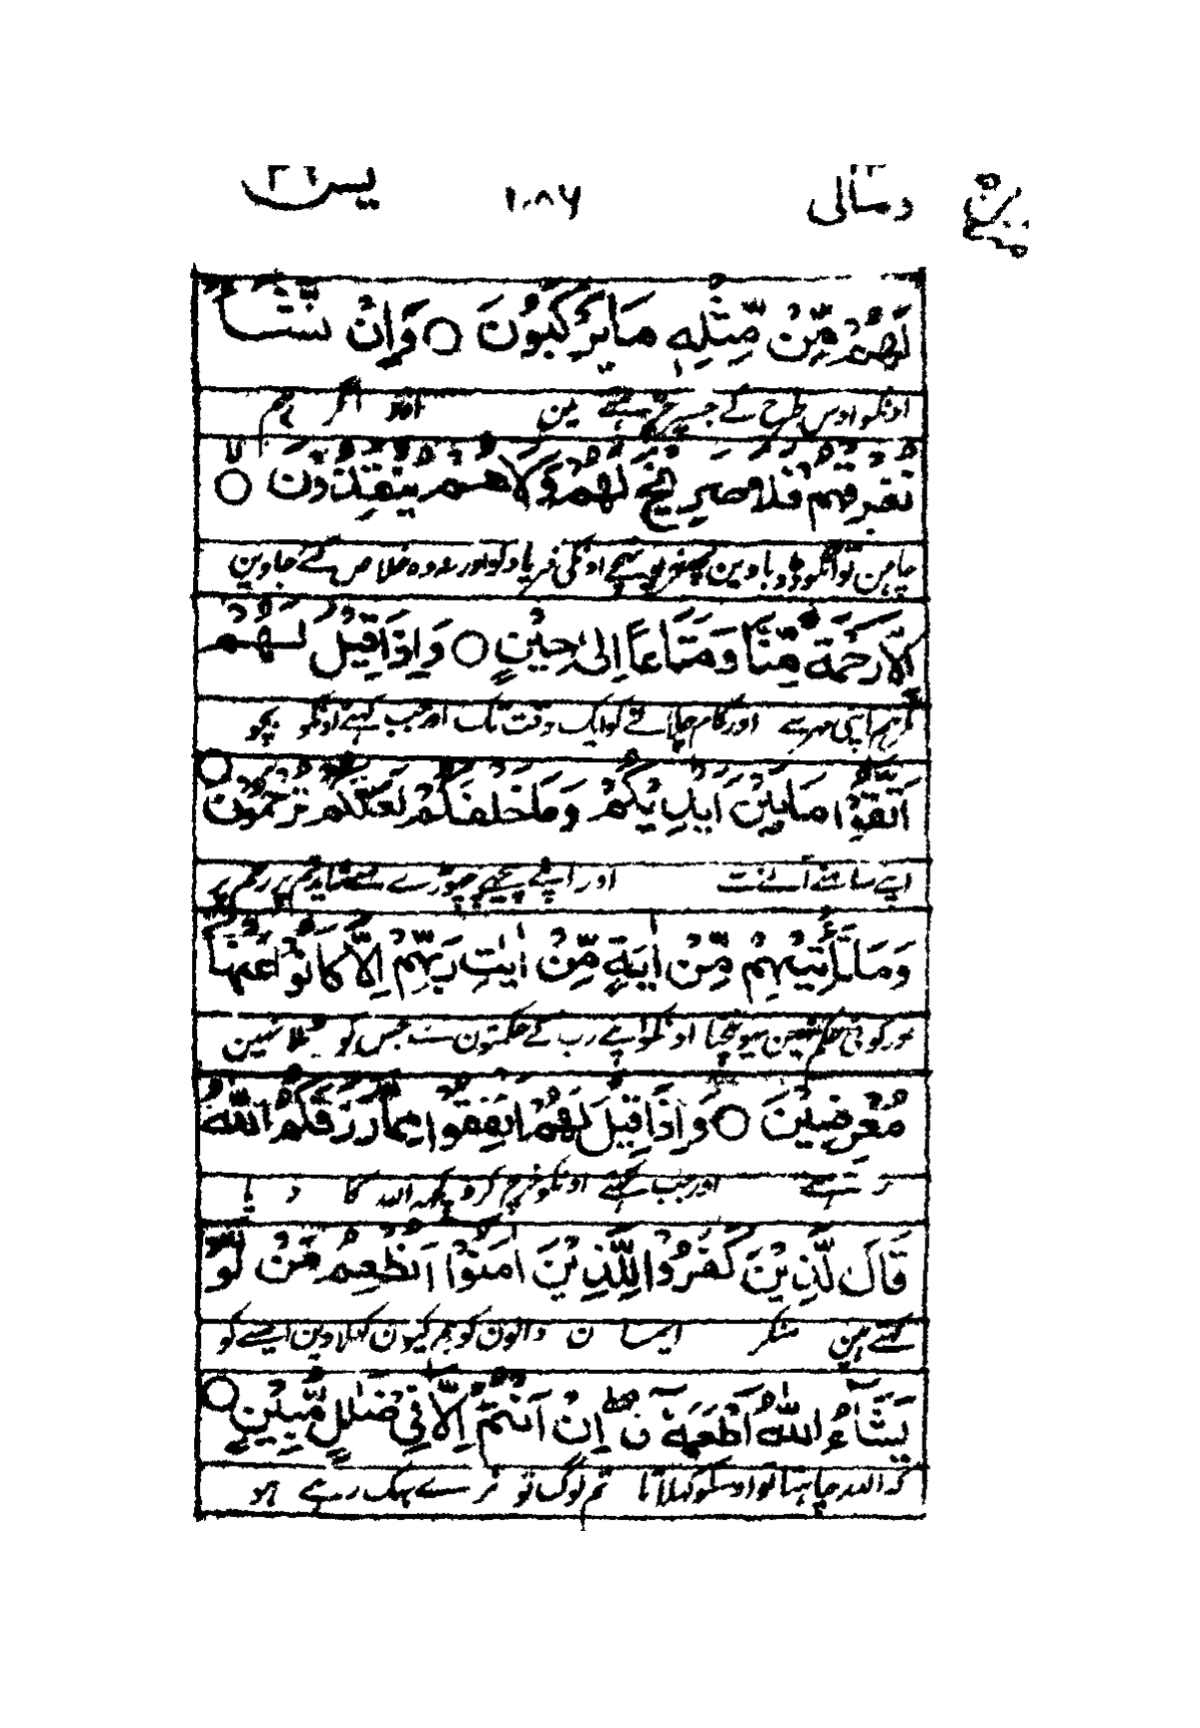 ومالی ۱۰۸۶ یس ۳۶
لَهُمْ مِّنْ مِّثْلِهٖ مَا يَرْكَبُوْنَ ○ وَاِنْ نَّشَاْ
اونکو اوس طرح کے جس پر چڑھتے ہین اور اگر ہم
نُغْرِقْهُمْ فَلَا صَرِيْخَ لَهُمْ وَلَا هُمْ يُنْقَذُوْنَ ○ لا
چاہین تو انکو ڈوبا دین پھر کوئی نہ پہونچے اونکی فریاد کو اور نہ وہ خلاص کئے جاوین
اِلَّا رَحْمَةً مِّنَّا وَمَتَاعًا اِلٰى حِيْنٍ ○ وَاِذَا قِيْلَ لَهُمُ
مگر ہم اپنی مہر سے اور کام چلانے کو ایک وقت تک اور جب کہئے اونکو بچو
اتَّقُوْا مَا بَيْنَ اَيْدِيْكُمْ وَمَا خَلْفَكُمْ لَعَلَّكُمْ تُرْحَمُوْنَ ○
اپنے سامنے آئے اور اپنے پیچھے چھوڑے سے شاید تم پر رحم
وَمَا تَاْتِيْهِمْ مِّنْ اٰيَةٍ مِّنْ اٰيٰتِ رَبِّهِمْ اِلَّا كَانُوْا عَنْهَا
اور کوئی حکم نہین پہونچتا اونکو اپنے رب کے حکمون سے جس کو نہین
مُعْرِضِيْنَ ○ وَاِذَا قِيْلَ لَهُمْ اَنْفِقُوْا مِمَّا رَزَقَكُمُ اللّٰهُ
اور جب کہئے اونکو خرچ کرو کچھ اللہ کا دیا
قَالَ الَّذِيْنَ كَفَرُوْا لِلَّذِيْنَ اٰمَنُوْٓا اَنُطْعِمُ مَنْ لَّوْ
کہتے ہین منکر ایمان والون کو ہم کیون کھلاوین ایسے کو
يَشَآءُ اللّٰهُ اَطْعَمَهٗٓ ط اِنْ اَنْتُمْ اِلَّا فِيْ ضَلٰلٍ مُّبِيْنٍ ○
کہ اللہ چاہتا تو اوسکو کھلاتا تم لوگ تو بہک رہے ہو